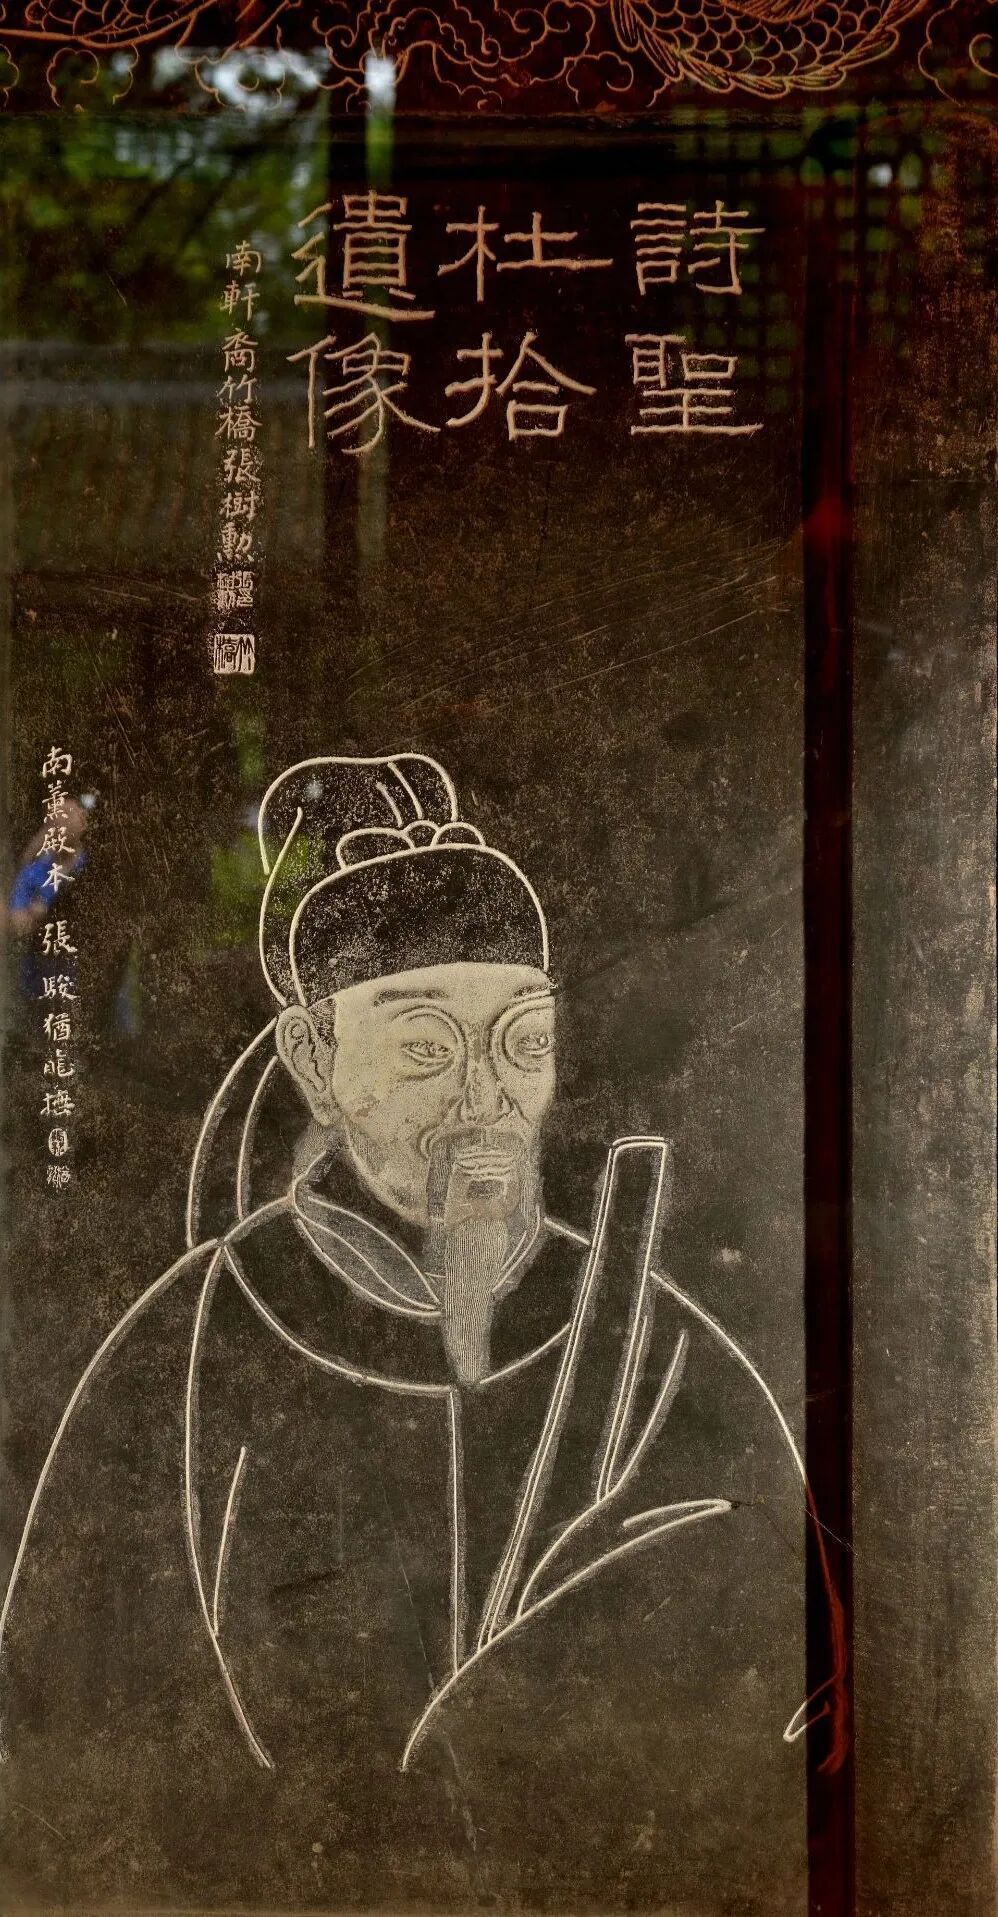 詩聖
杜拾
遺像
南軒裔竹橋張樹勲
竹橋
南薰殿本 張駿猶龍撫